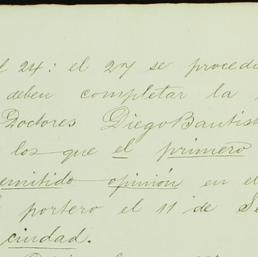 l 24: el 27 se procedi
deben completar la
Doctores Diego Bautis
los que el primero
emitido opinión en el
portero el 11 de Se
ciudad.